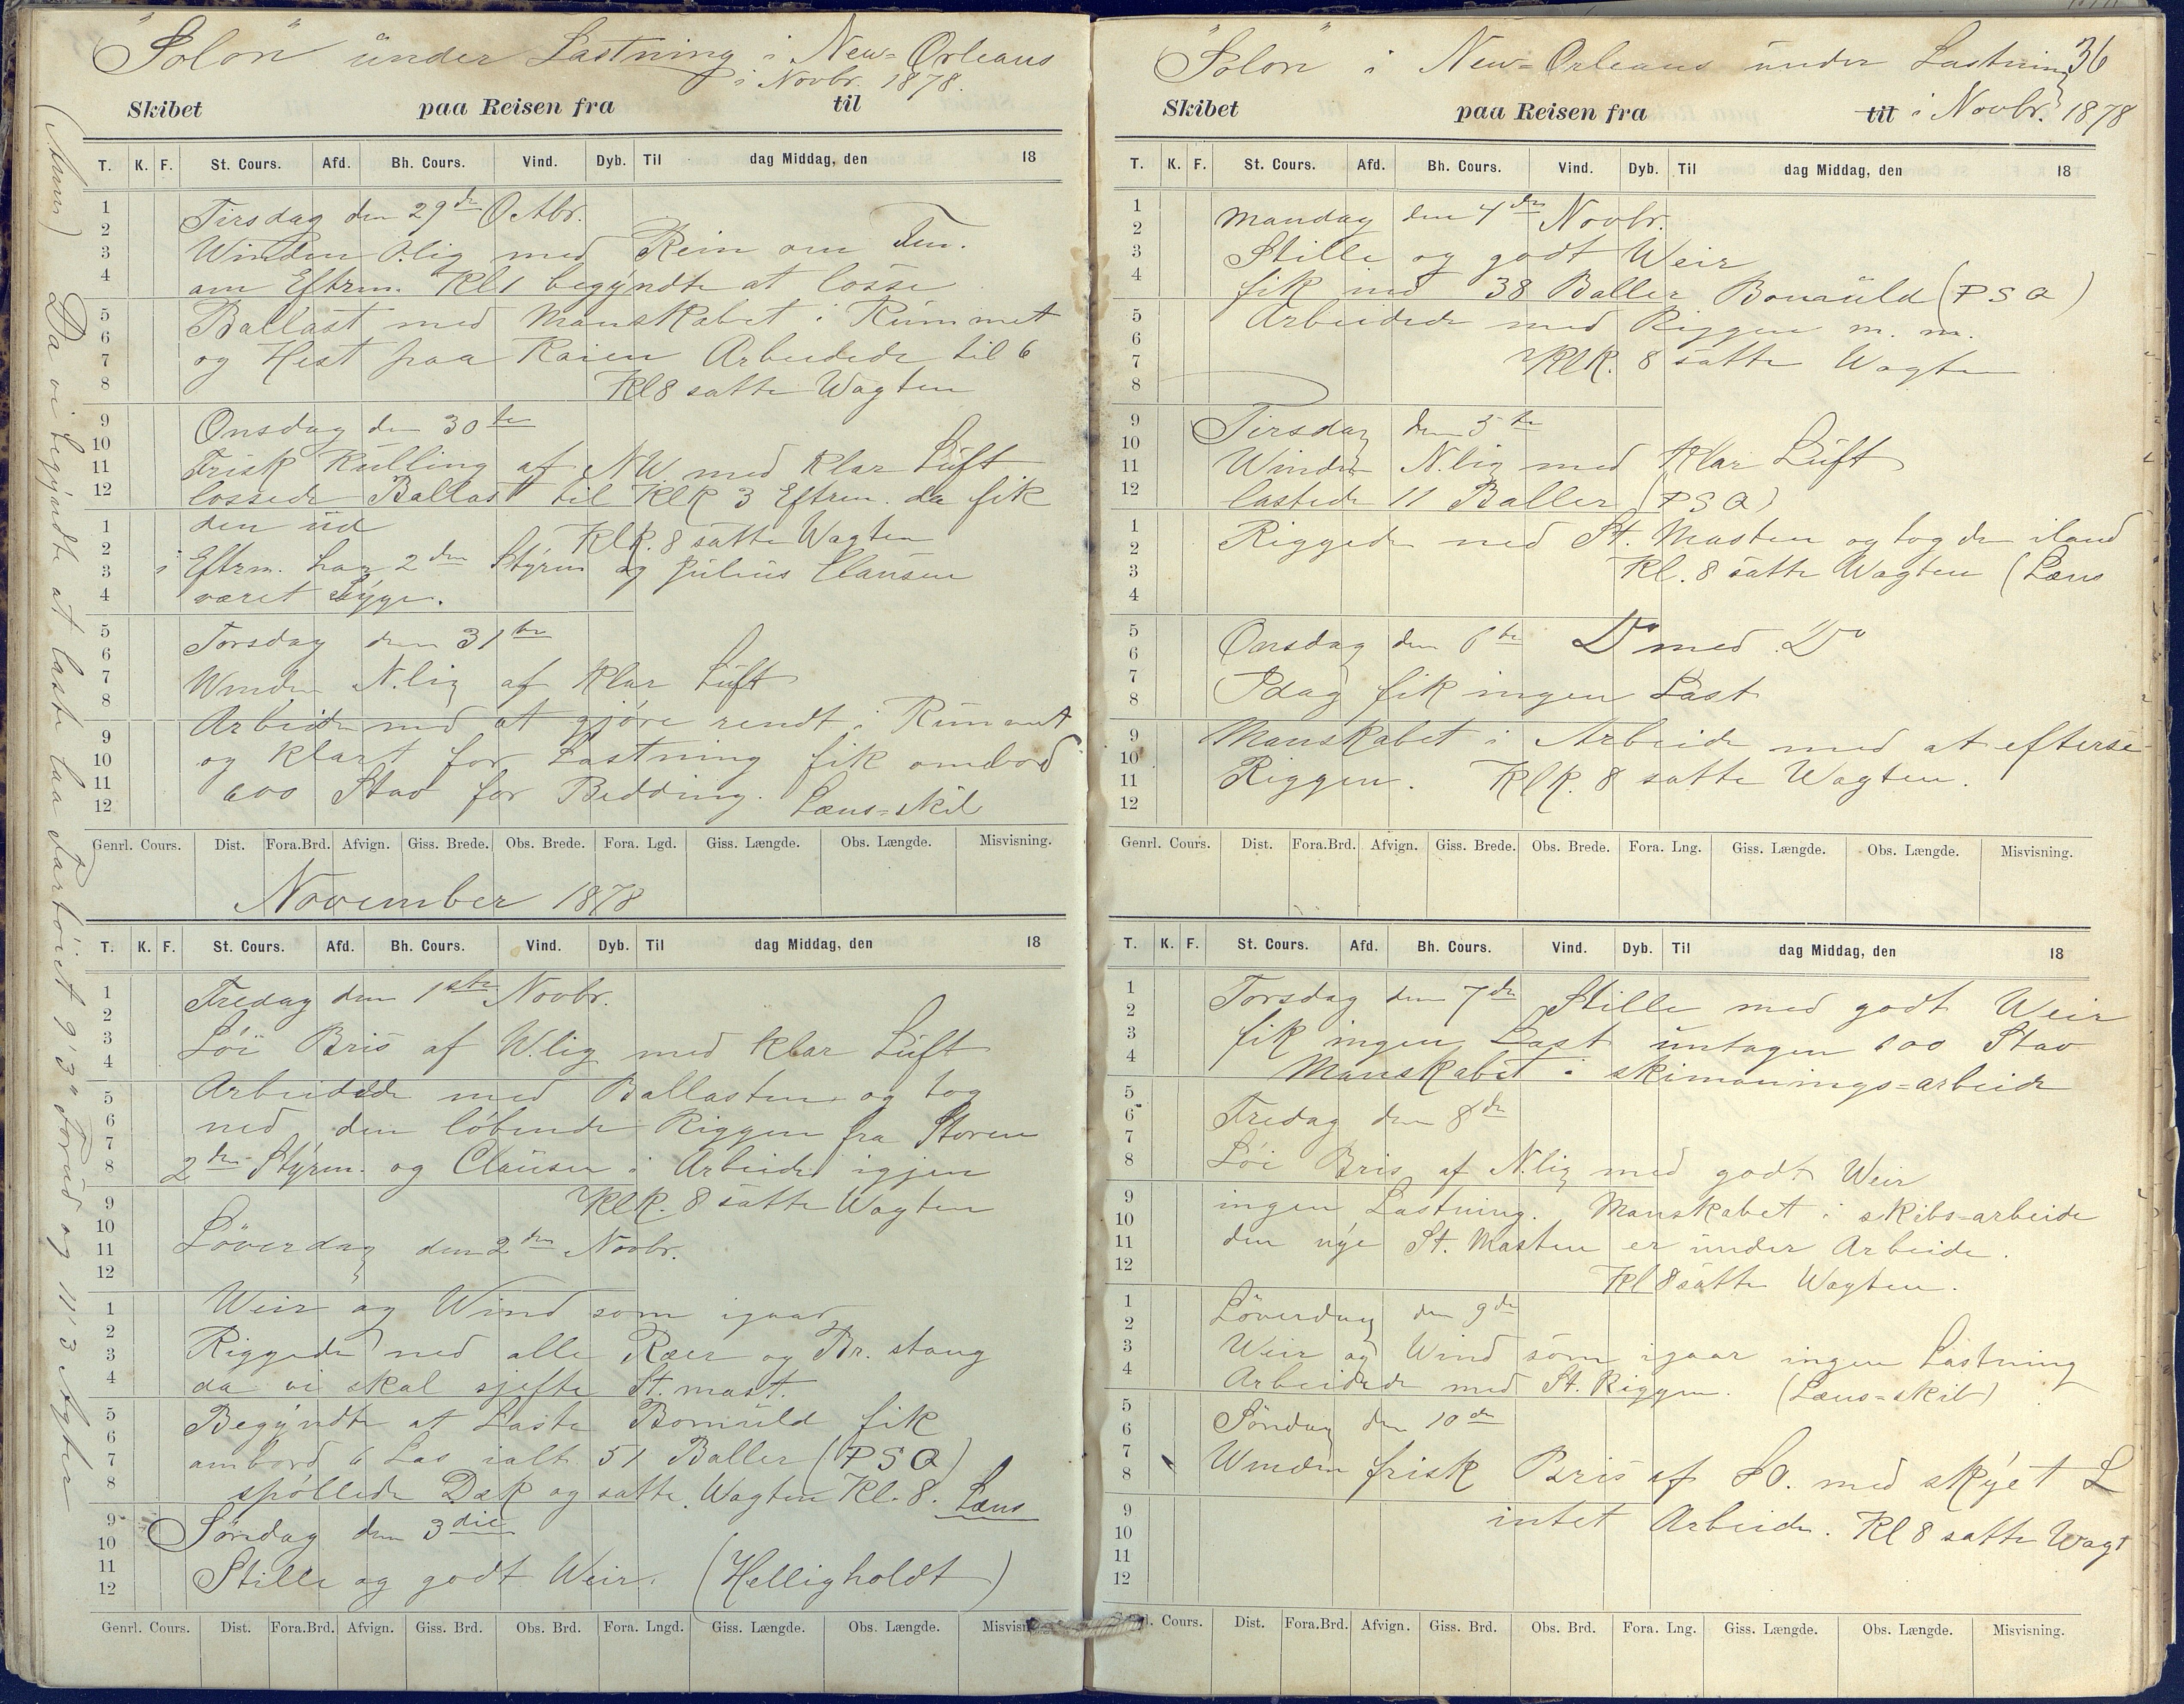 "Solon" under Lastning i New-Orleans
i Novbr. 1878.
Skibet paa Reisen fra til
T. K. F. St. Cours. Afd. Bh. Cours. Vind. Dyb. Til dag Middag, den 18
1
2
3
4
5
6
7
8
9
10
11
12
1
2
3
4
5
6
7
8
9
10
11
12
Tirsdag den 29de Octbr.
Winden O.lig med Rein om Fm.
om Eftrm. Kl 1 begyndte at losse
Ballast med Manskabet i Rummet
og Hest paa Kaien Arbeidede til 6
Kl 8 satte Wagten
Onsdag den 30te
Frisk Kulling af NW med klar Luft
lossede Ballast til Klk 3 Eftrm. da fik
den ud Klk. 8 satte Wagten
i Eftrm. har 2den Styrm og Julius Clausen
været syge.
Torsdag den 31te
Winden N.lig af klar Luft
Arbeide med at gjøre rendt i Rummet
og klart for Lastning fik ombord
600 Stav for Bedding. Læns-skib
Genrl. Cours. Dist. Fora.Brd. Afvign. Giss. Brede. Obs. Brede. Fora. Lgd. Giss. Længde. Obs. Længde. Misvisning.
November 1878
T. K. F. St. Cours. Afd. Bh. Cours. Vind. Dyb. Til dag Middag, den 18
1
2
3
4
5
6
7
8
9
10
11
12
1
2
3
4
5
6
7
8
9
10
11
12
Fredag den 1ste Novbr.
Löi Bris af W.lig med klar Luft
Arbeidede med Ballasten og tog
ned den löbende Riggen fra Storen
2den Styrm. og Clausen i Arbeide igjen
Klk. 8 satte Wagten
Löverdag den 2den Novbr.
Weir og Wind som igaar
Riggede ned alle Ræer og Br. stang
da vi skal sjefte St. mast.
Begyndte at Laste Bomuld fik
ombord 6 Las ialt 51 Baller (PSQ)
spöllede Dæk og satte Wagten Kl. 8. Læns
Söndag den 3die
Stille og godt Weir. (Helligholdt)
Genrl. Cours. Dist. Fora.Brd. Afvign. Giss. Brd. Obs. Brd. Fora. Lngd. Giss. Længde. Obs. Længde.
Da vi begyndte at laste laa Fartöiet 9'3" Forud og 11'3 Agter
"Solon" i New-Orleans under Lastning 36
Skibet paa Reisen fra til i Novbr. 1878
T. K. F. St. Cours. Afd. Bh. Cours. Vind. Dyb. Til dag Middag, den 18
1
2
3
4
5
6
7
8
9
10
11
12
1
2
3
4
5
6
7
8
9
10
11
12
Mandag den 4de Novbr.
Stille og godt Weir
fik ind 38 Baller Bomuld (PSQ)
Arbeidede med Riggen m. m.
Klk. 8 satte Wagten
Tirsdag den 5te
Winden N.lig med klar Luft
lastede 11 Baller (PSQ)
Riggede ned St. Masten og tog den iland
Kl. 8 satte Wagten (Læns
Onsdag den 6te Do med Do
Idag fik ingen Last
Manskabet i Arbeide med at efterse
Riggen. Klk. 8 satte Wagten.
Genrl. Cours. Dist. Fora.Brd. Afvign. Giss. Brede. Obs. Brede. Fora. Lng. Giss. Længde. Obs. Længde. Misvisning.
T. K. F. St. Cours. Afd. Bh. Cours. Vind. Dyb. Til dag Middag, den 18
1
2
3
4
5
6
7
8
9
10
11
12
1
2
3
4
5
6
7
8
9
10
11
12
Torsdag den 7de Stille med godt Weir
fik ingen Last untagen 600 Stav
Manskabet i skimanings-arbeide
Fredag den 8de
Löi Bris af N.lig med godt Weir
ingen Lastning. Manskabet i skibs-arbeide
den nye St. Masten er under Arbeide.
Kl 8 satte Wagten.
Löverdag den 9de
Weir og Wind som igaar ingen Lastning
Arbeidede med St. Riggen. (Læns-skib)
Söndag den 10de
Winden frisk Bris af SO. med skyet L
intet Arbeide. Kl 8 satte Wagt
Cours. Dist. Fora.Brd. Afvign. Giss. Brd. Obs. Brd. Fora. Lng. Giss. Længde. Obs. Længde. Misvisning.